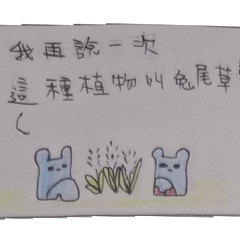 我再說一次
這種植物叫兔尾草